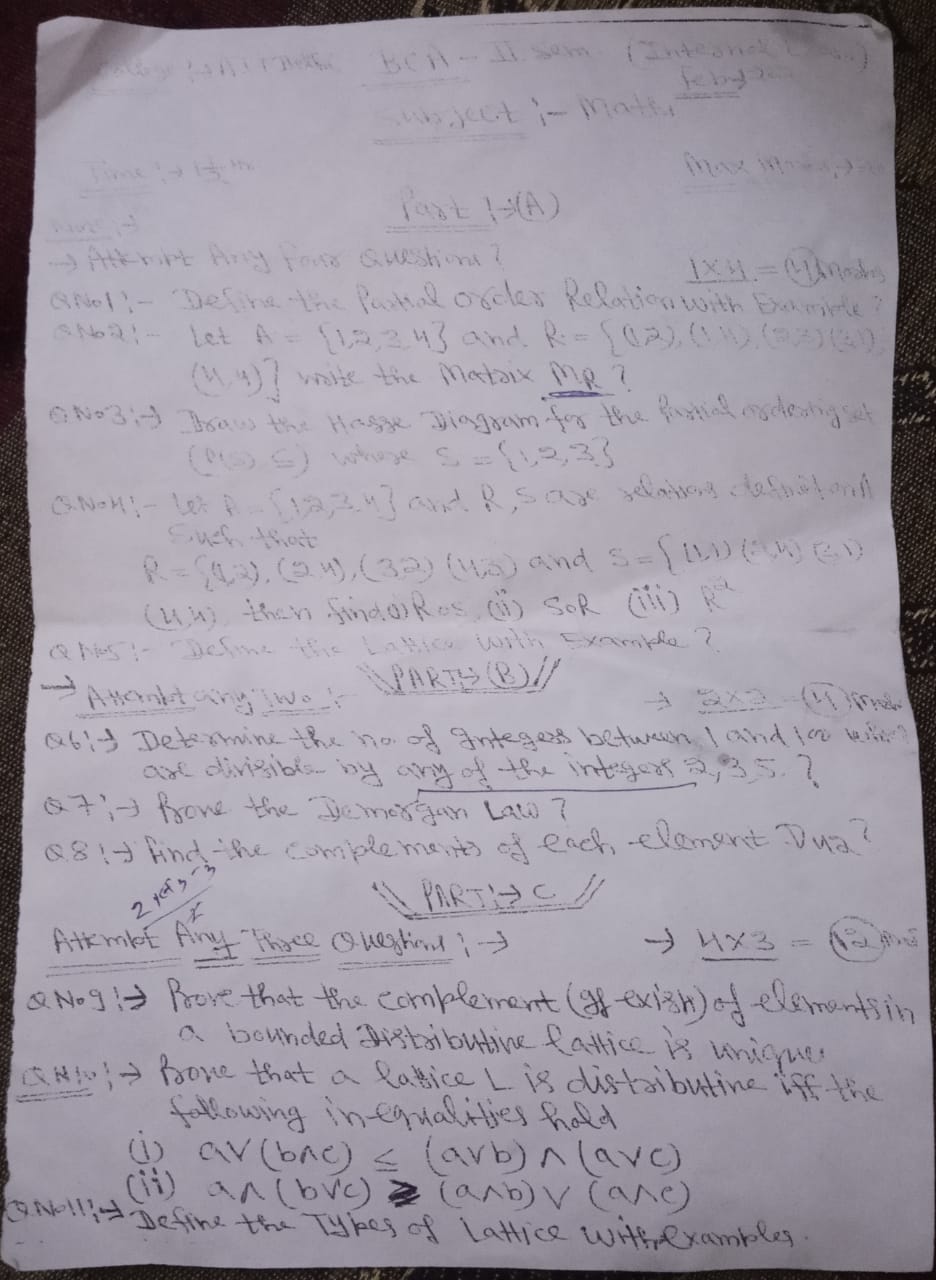 BCA - II Sem. (Internal
Subject :- Math
Time :→ 1½ hr
Max
Part :→(A)
→ Attempt Any four Questions ?
1X4 = (4) Marks
QNo1 :- Define the Partial order Relation with Example ?
QNo2 :- Let A = {1,2,3,4} and R = {(1,2), (1,4), (2,3)
(4,4)} write the Matrix MR ?
QNo3 :→ Draw the Hasse Diagram for the Partial ordering set
(P(S) ⊆) whose S = {1,2,3}
QNo4 :- Let A = {1,2,3,4} and R, S are relations on A
Such that
R = {(1,2), (2,4), (3,2) (4,3) and S = {(1,1)
(4,4) then find (i) Ros (ii) SoR (iii) R²
QNo5 :- Define the Lattice with Example ?
\\ PART:→ (B) //
→ Attempt any Two :-
→ 2X2 (4)
Q6 :→ Determine the no. of Integers between 1 and 100
are divisible by any of the integers 2, 3 5. ?
Q7 :→ Prove the Demorgan Law ?
Q8 :→ Find the complements of each element D42 ?
\\ PART :→ C //
Attempt Any Three Questions ; →
→ 4X3 = (12)
QNo9 :→ Prove that the complement (If exist) of elements in
a bounded Distributive lattice is unique
QNo10 :→ Prove that a lattice L is distributive iff the
following inequalities hold
(i) a∨(b∧c) ≤ (a∨b) ∧ (a∨c)
(ii) a∧(b∨c) ≥ (a∧b) ∨ (a∧c)
QNo11 :→ Define the Types of Lattice with Examples.